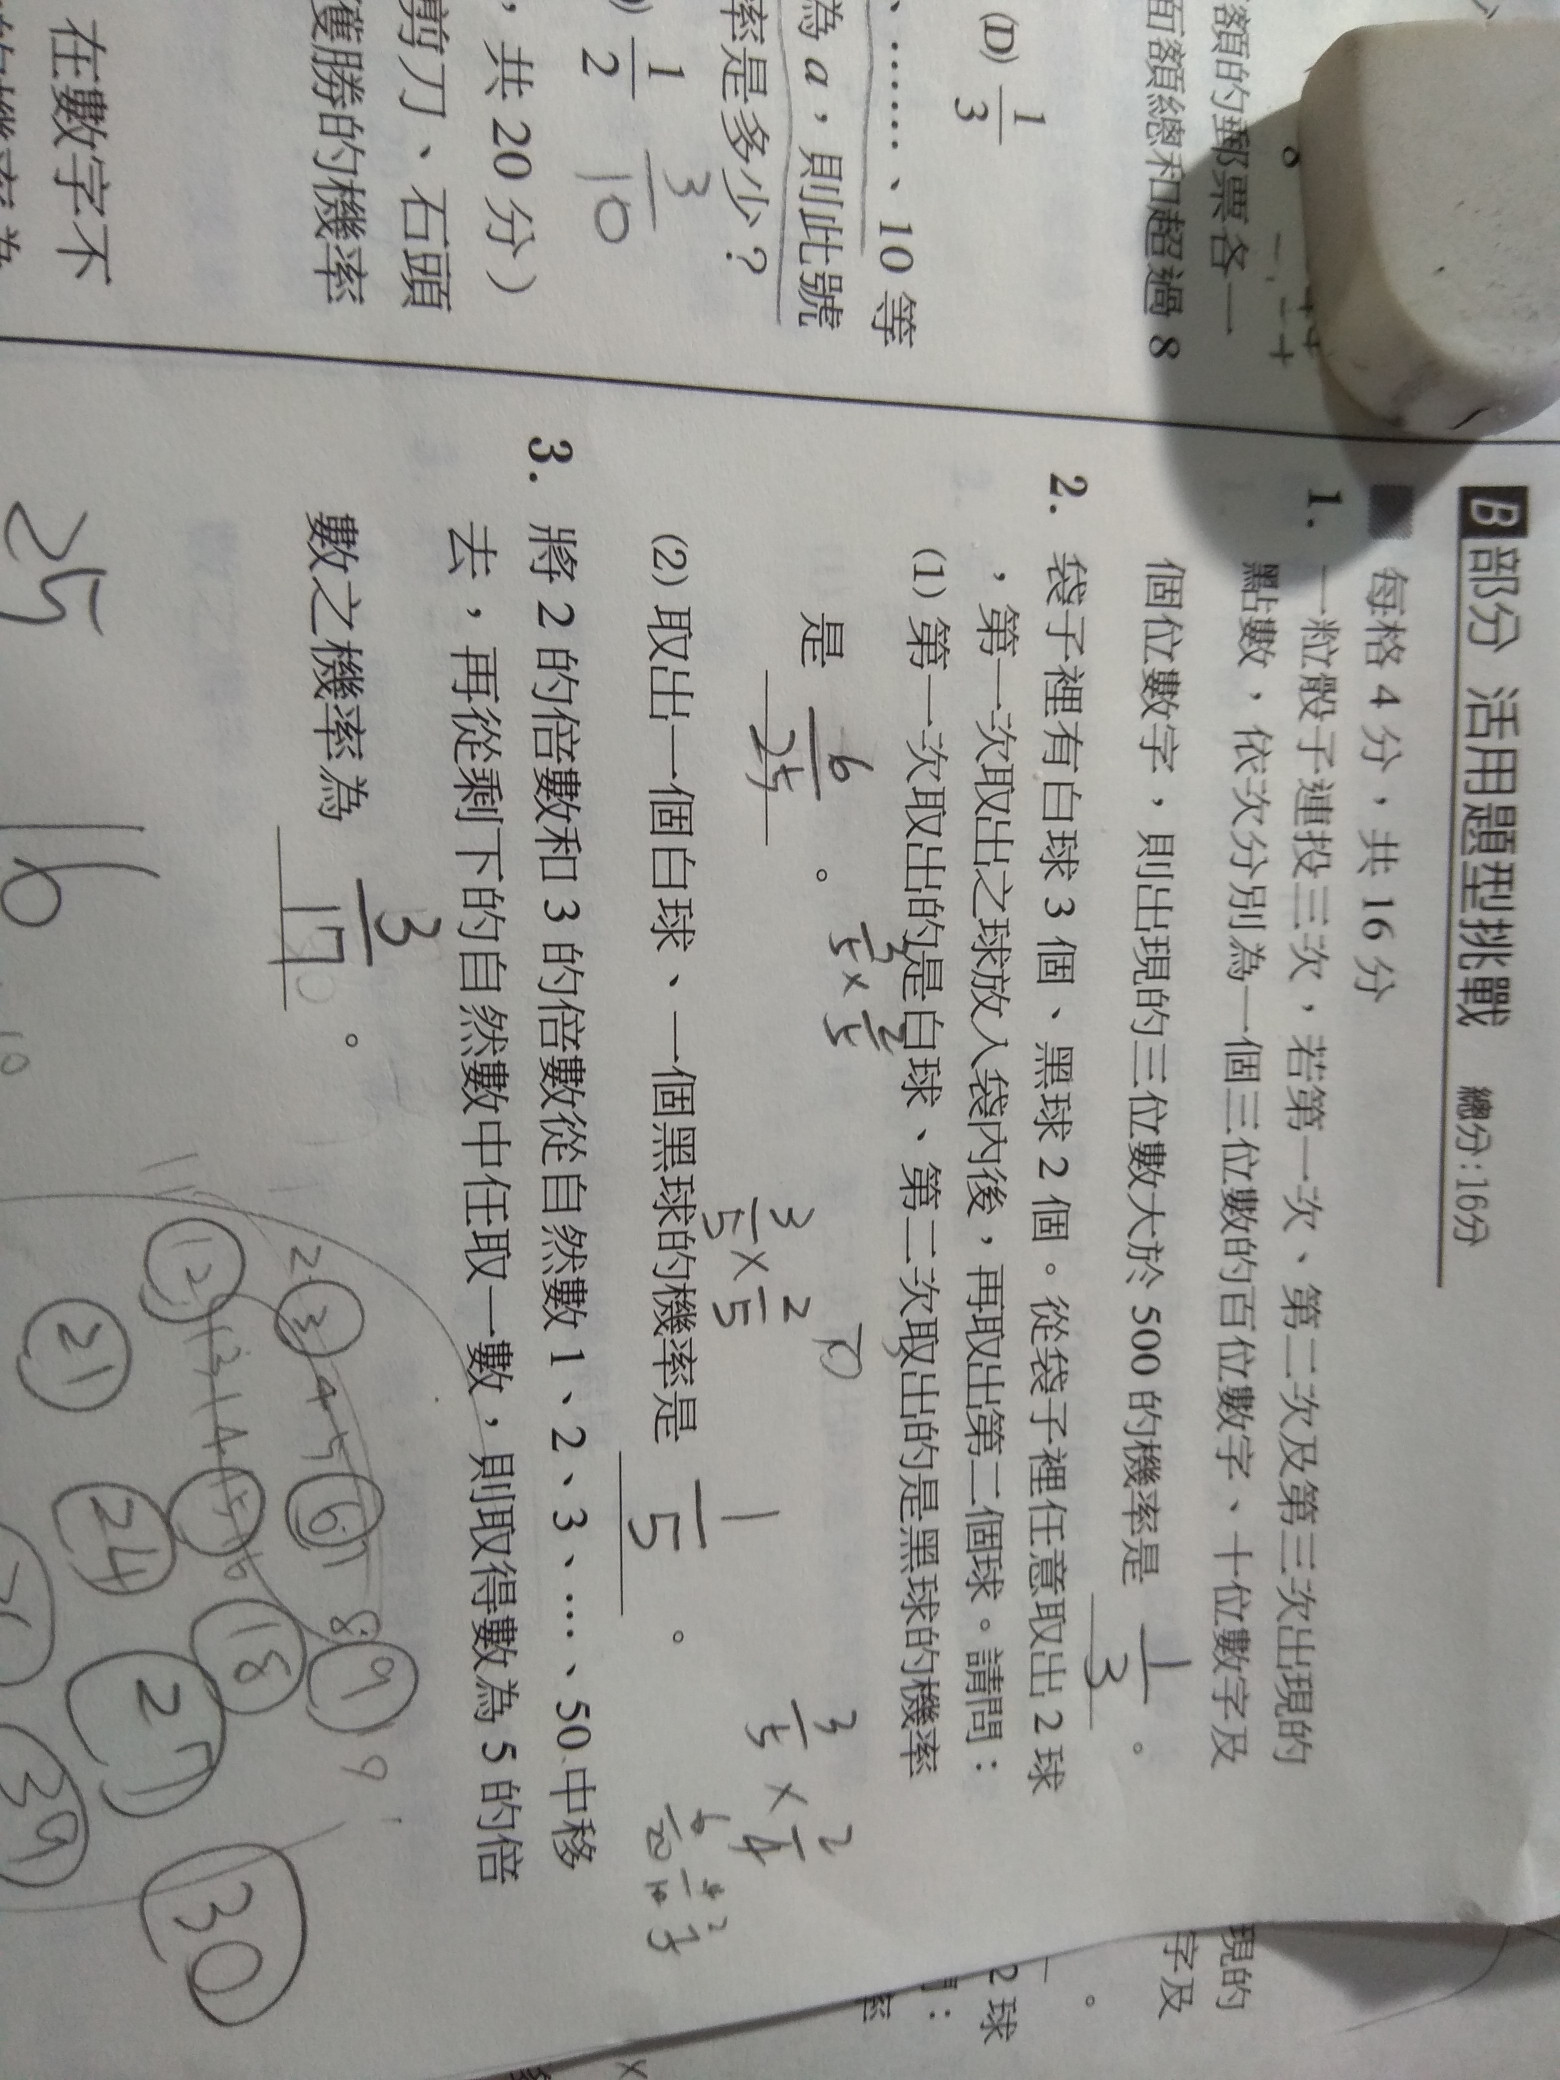 B部分 活用題型挑戰 總分:16分
每格 4 分，共 16 分
1. 一粒骰子連投三次，若第一次、第二次及第三次出現的
點數，依次分別為一個三位數的百位數字、十位數字及
個位數字，則出現的三位數大於 500 的機率是 1/3 。
2. 袋子裡有白球 3 個、黑球 2 個。從袋子裡任意取出 2 球
，第一次取出之球放入袋內後，再取出第二個球。請問：
(1) 第一次取出的是白球、第二次取出的是黑球的機率
是 6/25 。
3/5 × 2/5
(2) 取出一個白球、一個黑球的機率是 1/5 。
3/5 × 2/5
3/5 × 2/4
3. 將 2 的倍數和 3 的倍數從自然數 1、2、3、…、50 中移
去，再從剩下的自然數中任取一數，則取得數為 5 的倍
數之機率為 3/17 。
2 3 4 5 6 7 8 9
12 13 14 15 16 18
21 24 27 30
39
25 16
額的郵票各一
面額總和超過 8
(D) 1/3
、……、10 等
為 a，則此號
率是多少？
1/2 3/10
，共 20 分）
剪刀、石頭
獲勝的機率
在數字不
現的
字及
。
2 球